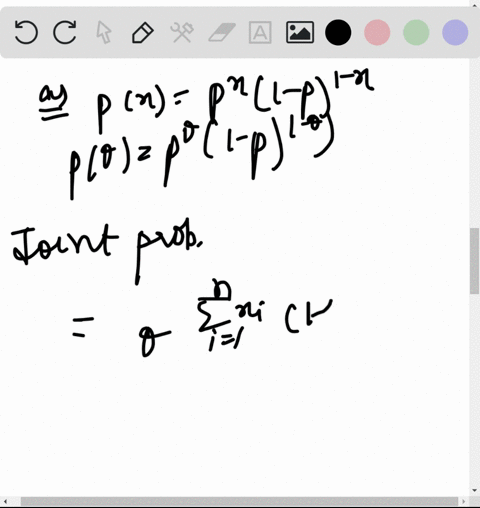 ans p(x) = p^x (1-p)^{1-x}
p(θ) = p^θ (1-p)^{1-θ})
Joint prob.
= θ \sum_{i=1}^{n} x_i (1-